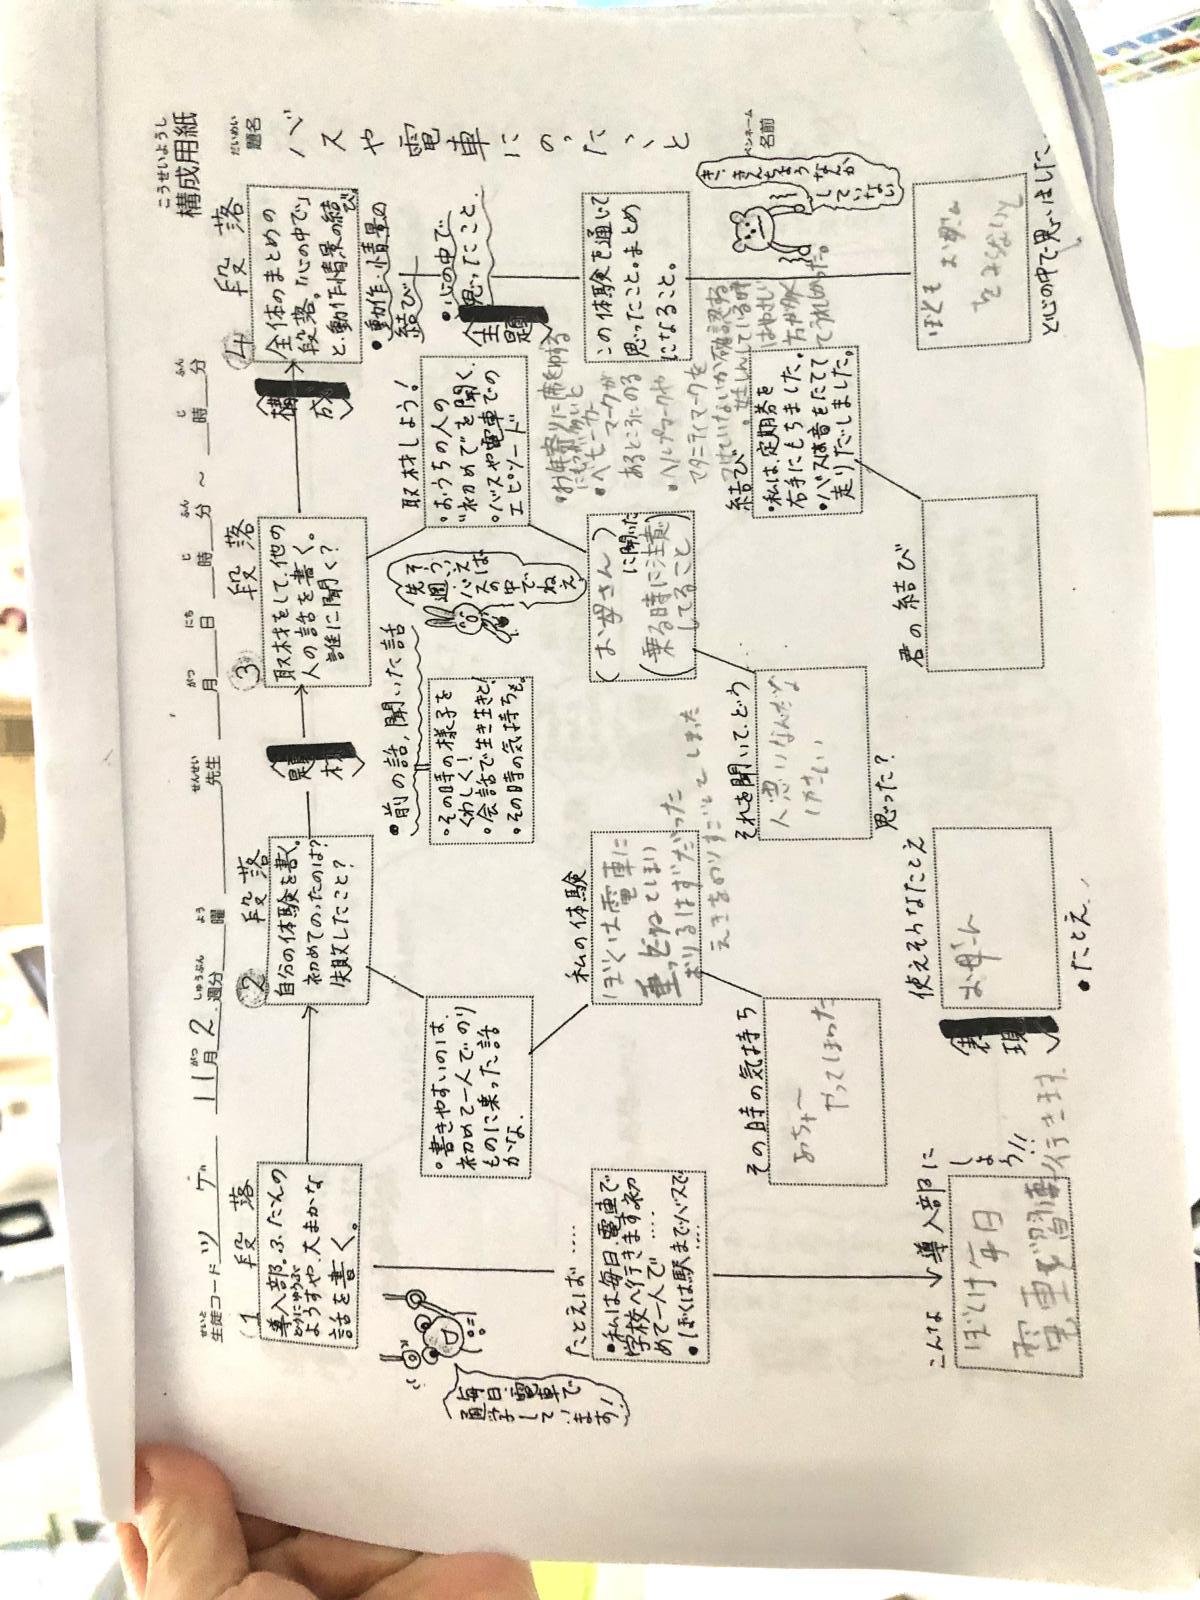 こうせいようし
構成用紙
せいと
生徒コード ツ ゲn
11月2週分
がつ しゅうぶん
よう
曜
せんせい
先生
がつ にち じ ふん じ ふん
月 日 時 分 ～ 時 分
だいめい
題名
バスや電車にのったこと
ペンネーム
名前
1 段落
導入部。ふだんの
どうにゅうぶ
ようすや、大まかな
話を書く。
毎日、電車で
通学して
います!
たとえば……
•私は毎日、電車で
学校へ行きます。初
めて一人で……
•ぼくは駅までバスで
……
こんな↓導入部に
しよう!!
ぼくは毎日
行きます
2 段落
自分の体験を書く。
初めてのったのは?
失敗したこと?
•書きやすいのは、
初めて一人でのり
ものに乗った話
かな。
私の体験
ぼくは電車に
乗ってしまい
おりるはずだった
えきをのりすごしてしまった
その時の気持ち
あちゃ〜
やってしまった
表現
使えそうなたとえ
お母さん
•たとえ
題材
3 段落
取材をして、他の
人の話を書く。
誰に聞く?
•前の話,聞いた話
•その時の様子を
くわしく!
•会話で生き生きと!
•その時の気持ちも。
そうねえ
先週、バスの中で
取材しよう!
•おうちの人の
"初めて"を聞く。
•バスや電車での
エピソード
(お母さん)
に聞いた
(乗る時に注意
してること)
•お年寄りに席をゆずる
•ベビーカー
マークが
あるところにのる
•ヘルプマークや
マタニティマークを
つけていないか確認する
それを聞いて、どう
思った?
構成
4 段落
全体のまとめの
段落。「心の中で」
と、動作・情景の結び
•動作・情景の
結び
•心の中で
思ったこと
主題
この体験を通じて
思ったこと。まとめ
になること。
き、きんちょう
なんか
していない
ぼくも お母さん
と心の中で思いました。
結び
•私は、定期券を
右手にもちました。
•バスは音をたてて
走りだしました。
君の結び